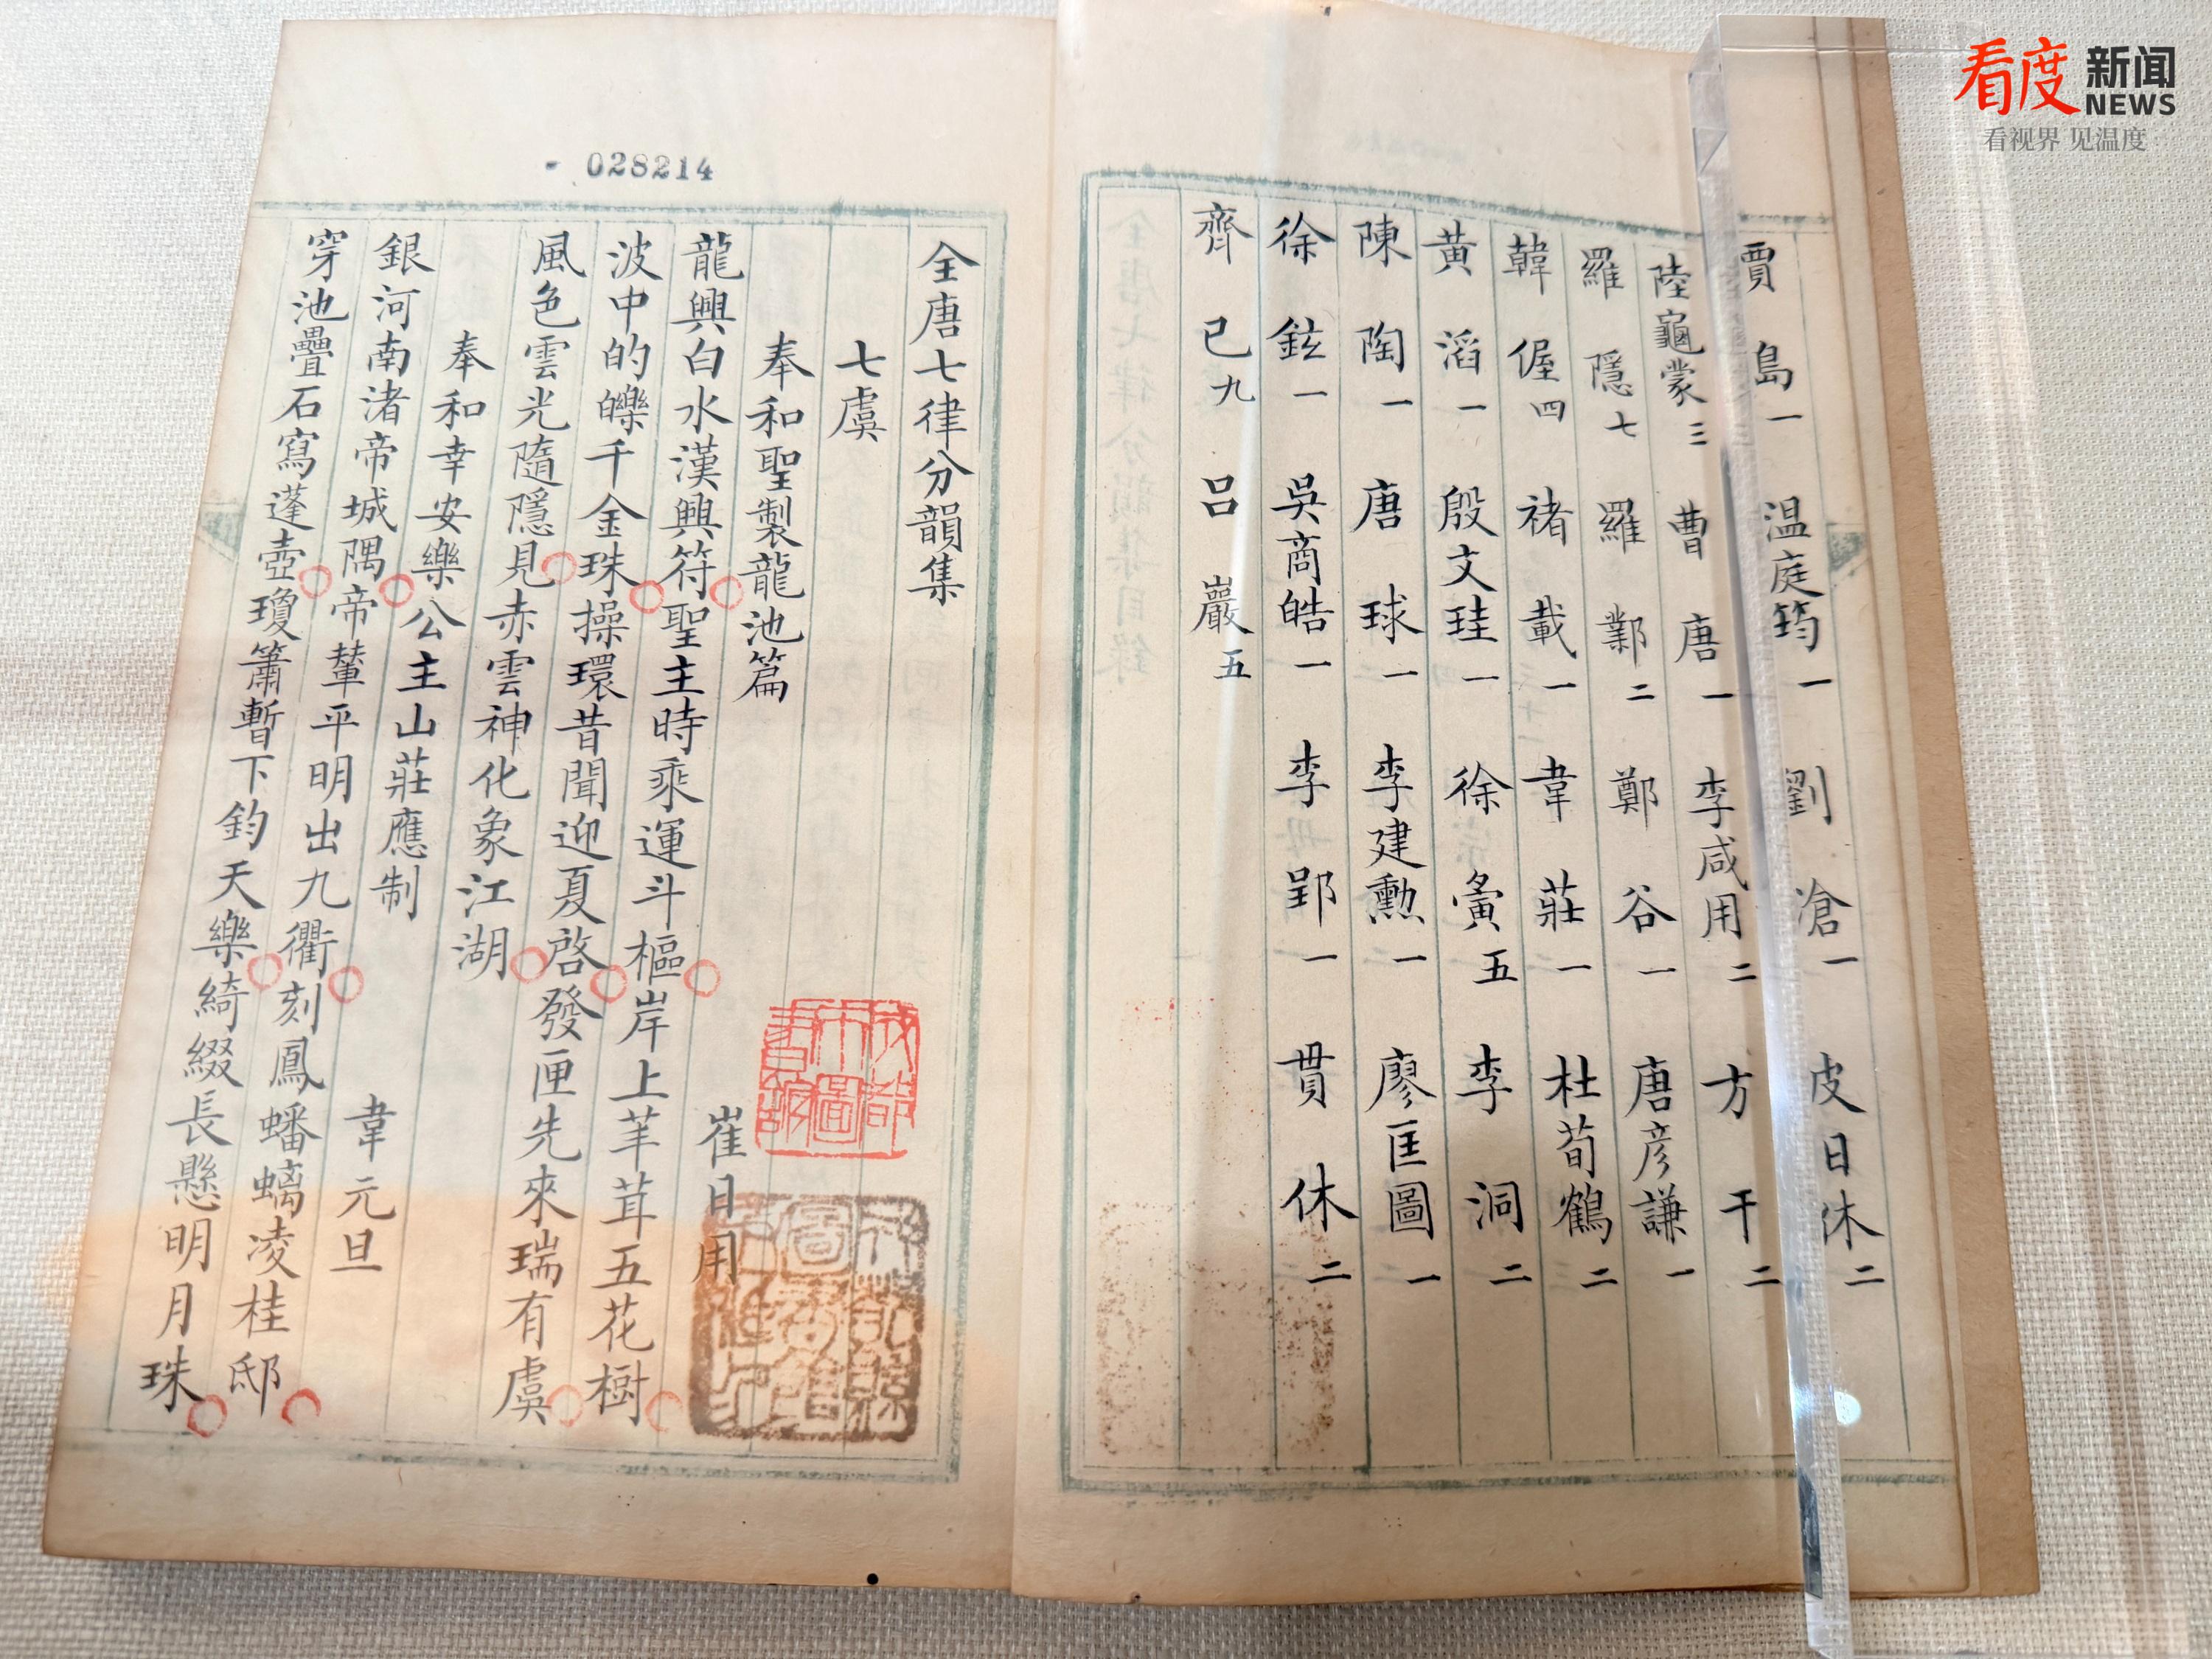 看度新闻
NEWS
看视界 见温度
賈島一 温庭筠一 劉滄一 皮日休二
陸龜蒙三 曹唐一 李咸用二 方干二
羅隱七 羅鄴二 鄭谷一 唐彦謙一
韓偓四 褚載一 韋莊一 杜荀鶴二
黃滔一 殷文珪一 徐夤五 李洞二
陳陶一 唐球一 李建勳一 廖匡圖一
徐鉉一 吳商皓一 李郢一 貫休二
齊已九 呂巖五
028214
全唐七律分韻集
七虞
奉和聖製龍池篇 崔日用
龍興白水漢興符聖主時乘運斗樞岸上芊茸五花樹
波中的皪千金珠操環昔聞迎夏啓發匣先來瑞有虞
風色雲光隨隱見赤雲神化象江湖
奉和幸安樂公主山莊應制 韋元旦
銀河南渚帝城隅帝輦平明出九衢刻鳳蟠螭凌桂邸
穿池疊石寫蓬壺瓊簫暫下鈞天樂綺綴長懸明月珠
成都
市圖
書館